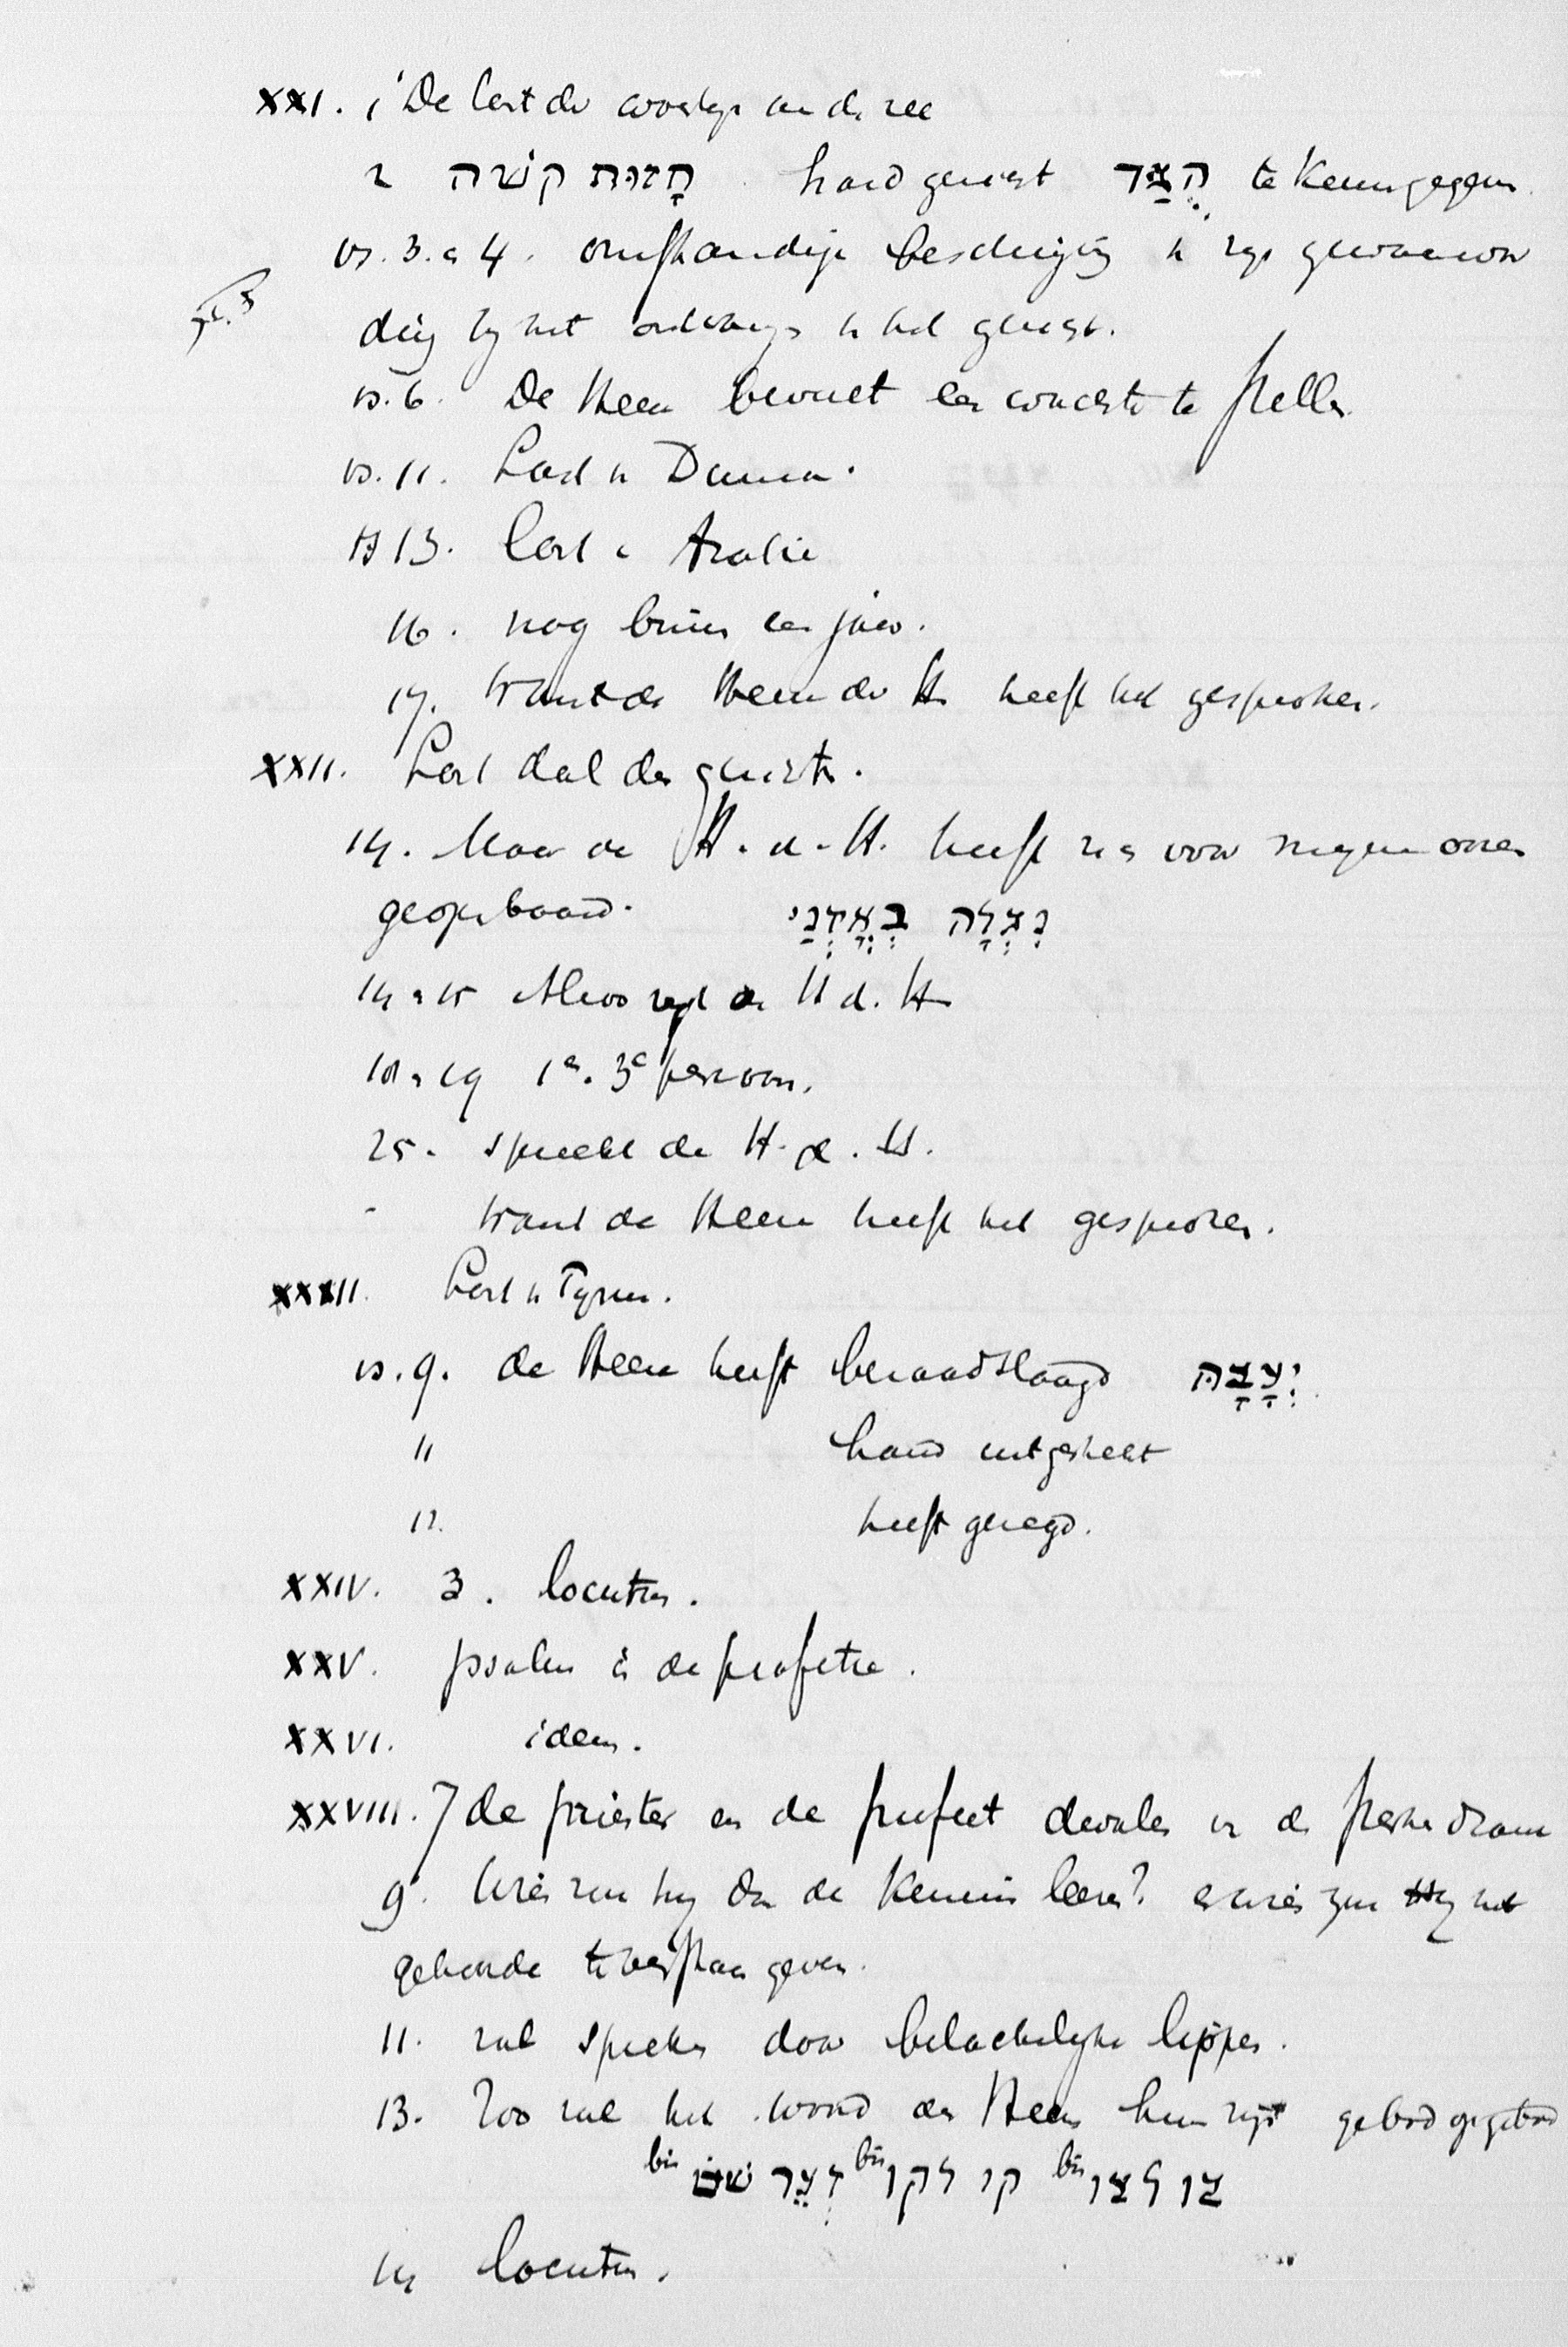 XXI. 1 De last der woestijn aan de zee
2 חָזוּת קשׁה hard gezicht הֻגַּד te kennen gegeven.
vs. 3. e 4. omstandige beschrijving v zijn gewaarwor
ding bij het ontvangen v het gezicht.
vs. 6. De Heere beveelt een wachter te stellen
vs. 11. Last v Duma.
vs 13. Last v Arabie
16. nog binnen een jaar.
17. Want de Heere der H. heeft het gesproken.
XXII. Last dal des gezichts.
14. Maar de H. d. H. heeft zich voor mijne ooren
geopenbaard. נִגְלָה בְאָזְנָי
14 e 15 Alzoo zegt de H d. H
18 e 19 1e. 3e persoon.
25. spreekt de H. d. H.
- Want de Heere heeft het gesproken.
XXXIII. Last v Tyrus.
vs. 9. de Heere heeft beraadslaagd יְעָצָהּ
11 hand uitgestrekt
12. heeft gezegd.
XXIV. 3. locuties.
XXV. psalm in de profetie.
XXVI. idem.
XXVIII. 7 de priester en de profeet dwalen v de sterken drank
9. Wien zou hij dan de kennis leeren? en wien zou Hij het
gehoorde te verstaan geven.
11. zal spreken door belachelijke lippen.
13. Zoo zal het woord des Heeren hun zijn gebod op gebod
צו לצו bis קו לקו bis זְעֵיר שׁם bis
14 locuties.